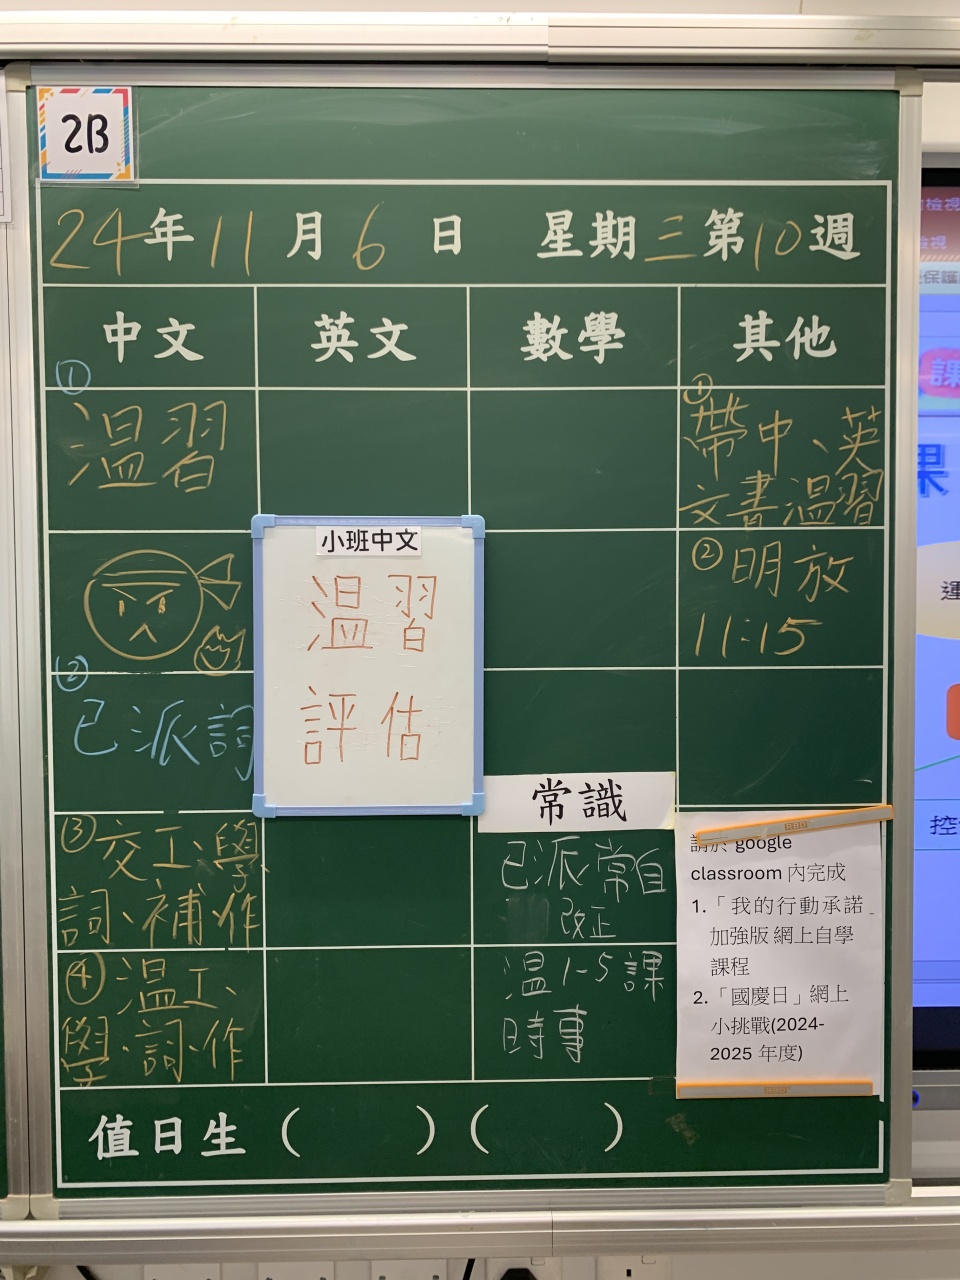 2B
24年11月6日 星期三第10週
中文 英文 數學 其他
①
温習
②
已派詞
③交工、學、
詞、補、作
④温工、
學、詞、作
小班中文
温習
評估
常識
已派常自
改正
温1-5課
時事
①
帶中、英
文書温習
②明放
11:15
請於 google
classroom 內完成
1.「我的行動承諾
加強版 網上自學
課程
2.「國慶日」網上
小挑戰(2024-
2025 年度)
值日生 ( ) ( )
檢視
檢視
保護
課
果
運
控